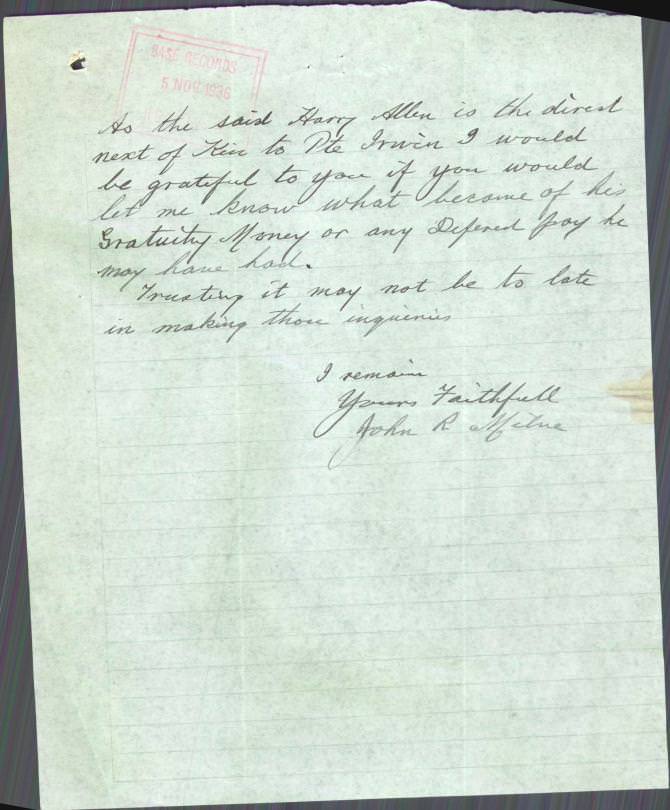 BASE RECORDS
5 NOV 1936
As the said Harry Allen is the direct
next of Kin to Pte Irwin I would
be grateful to you if you would
let me know what became of his
Gratuity Money or any Defered pay he
may have had.
Trusting it may not be to late
in making those inquieries
I remain
Yours Faithfull
John R Milne